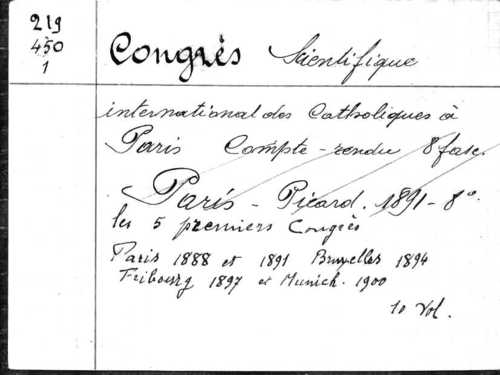 219
450
1
Congrès Scientifique
international des Catholiques à
Paris Compte-rendu 8 fasc.
Paris - Picard. 1891 - 8°.
les 5 premiers Congrès
Paris 1888 et 1891 Bruxelles 1894
Fribourg 1897 et Munich. 1900
10 Vol.